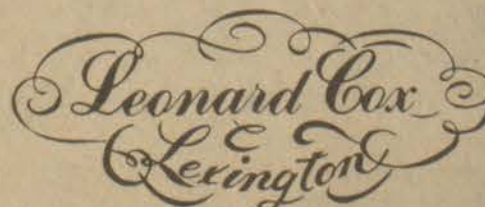 Leonard Cox
Lexington